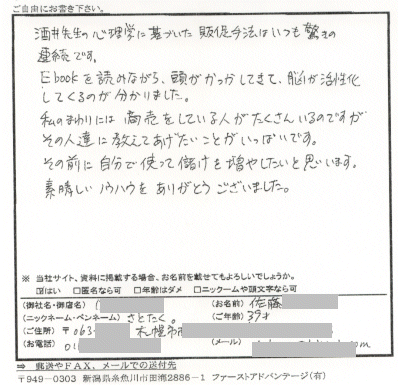 ご自由にお書き下さい。
酒井先生の心理学に基づいた販促手法はいつも驚きの
連続です。
Ebookを読みながら、頭がかっかしてきて、脳が活性化
してくるのが分かりました。
私のまわりには商売をしている人がたくさんいるのですが
その人達に教えてあげたいことがいっぱいです。
その前に自分で使って儲けを増やしたいと思います。
素晴しいノウハウをありがとうございました。
※ 当社サイト、資料に掲載する場合、お名前を載せてもよろしいでしょうか。
☑はい □匿名なら可 □年齢はダメ □ニックームや頭文字なら可
(御社名・御店名) (お名前) 佐藤
(ニックネーム・ペンネーム) さとたく。 (ご年齢) 39才
(ご住所) 〒063- 札幌市
(お電話) 01 (メール)
⇒ 郵送やFAX、メールでの送付先
〒949-0303 新潟県糸魚川市田海2886-1 ファーストアドバンテージ(有)